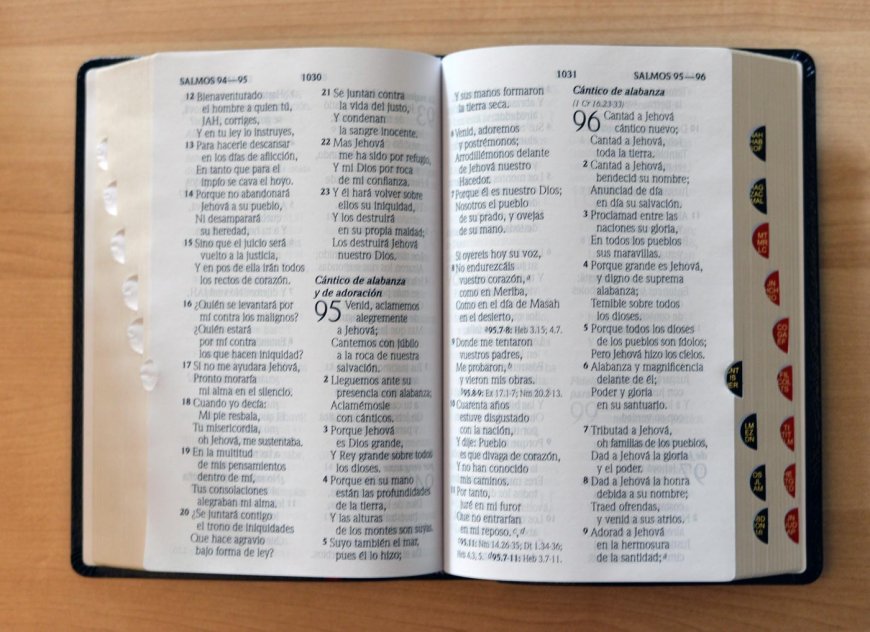 SALMOS 94—95
1030
12 Bienaventurado
el hombre a quien tú,
JAH, corriges,
Y en tu ley lo instruyes,
13 Para hacerle descansar
en los días de aflicción,
En tanto que para el
impío se cava el hoyo.
14 Porque no abandonará
Jehová a su pueblo,
Ni desamparará
su heredad,
15 Sino que el juicio será
vuelto a la justicia,
Y en pos de ella irán todos
los rectos de corazón.
16 ¿Quién se levantará por
mí contra los malignos?
¿Quién estará
por mí contra
los que hacen iniquidad?
17 Si no me ayudara Jehová,
Pronto moraría
mi alma en el silencio.
18 Cuando yo decía:
Mi pie resbala,
Tu misericordia,
oh Jehová, me sustentaba.
19 En la multitud
de mis pensamientos
dentro de mí,
Tus consolaciones
alegraban mi alma.
20 ¿Se juntará contigo
el trono de iniquidades
Que hace agravio
bajo forma de ley?
21 Se juntan contra
la vida del justo,
Y condenan
la sangre inocente.
22 Mas Jehová
me ha sido por refugio,
Y mi Dios por roca
de mi confianza.
23 Y él hará volver sobre
ellos su iniquidad,
Y los destruirá
en su propia maldad;
Los destruirá Jehová
nuestro Dios.
Cántico de alabanza
y de adoración
95 Venid, aclamemos
alegremente
a Jehová;
Cantemos con júbilo
a la roca de nuestra
salvación.
2 Lleguemos ante su
presencia con alabanza;
Aclamémosle
con cánticos.
3 Porque Jehová
es Dios grande,
Y Rey grande sobre todos
los dioses.
4 Porque en su mano
están las profundidades
de la tierra,
Y las alturas
de los montes son suyas.
5 Suyo también el mar,
pues él lo hizo;
1031
SALMOS 95—96
Y sus manos formaron
la tierra seca.
6 Venid, adoremos
y postrémonos;
Arrodillémonos delante
de Jehová nuestro
Hacedor.
7 Porque él es nuestro Dios;
Nosotros el pueblo
de su prado, y ovejas
de su mano.
Si oyereis hoy su voz,
8 No endurezcáis
vuestro corazón, a
como en Meriba,
Como en el día de Masah
en el desierto,
a95.7-8: Heb 3.15; 4.7.
9 Donde me tentaron
vuestros padres,
Me probaron, b
y vieron mis obras.
b95.8-9: Ex 17.1-7; Nm 20.2-13.
10 Cuarenta años
estuve disgustado
con la nación,
Y dije: Pueblo
es que divaga de corazón,
Y no han conocido
mis caminos.
11 Por tanto,
juré en mi furor
Que no entrarían
en mi reposo. c, d
c95.11: Nm 14.26-35; Dt 1.34-36;
Heb 4.3, 5. d95.7-11: Heb 3.7-11.
Cántico de alabanza
(1 Cr 16.23-33)
96 Cantad a Jehová
cántico nuevo;
Cantad a Jehová,
toda la tierra.
2 Cantad a Jehová,
bendecid su nombre;
Anunciad de día
en día su salvación.
3 Proclamad entre las
naciones su gloria,
En todos los pueblos
sus maravillas.
4 Porque grande es Jehová,
y digno de suprema
alabanza;
Temible sobre todos
los dioses.
5 Porque todos los dioses
de los pueblos son ídolos;
Pero Jehová hizo los cielos.
6 Alabanza y magnificencia
delante de él;
Poder y gloria
en su santuario.
7 Tributad a Jehová,
oh familias de los pueblos,
Dad a Jehová la gloria
y el poder.
8 Dad a Jehová la honra
debida a su nombre;
Traed ofrendas,
y venid a sus atrios.
9 Adorad a Jehová
en la hermosura
de la santidad; a
HAB
SOF
HAG
ZAC
MAL
MT
MR
LC
JN
HCH
RO
CO
GA
EF
CNT
IS
JER
FIL
COL
TS
LM
EZ
DN
TI
TIT
OS
JL
AM
ABD
JON
JN
JUD
AP